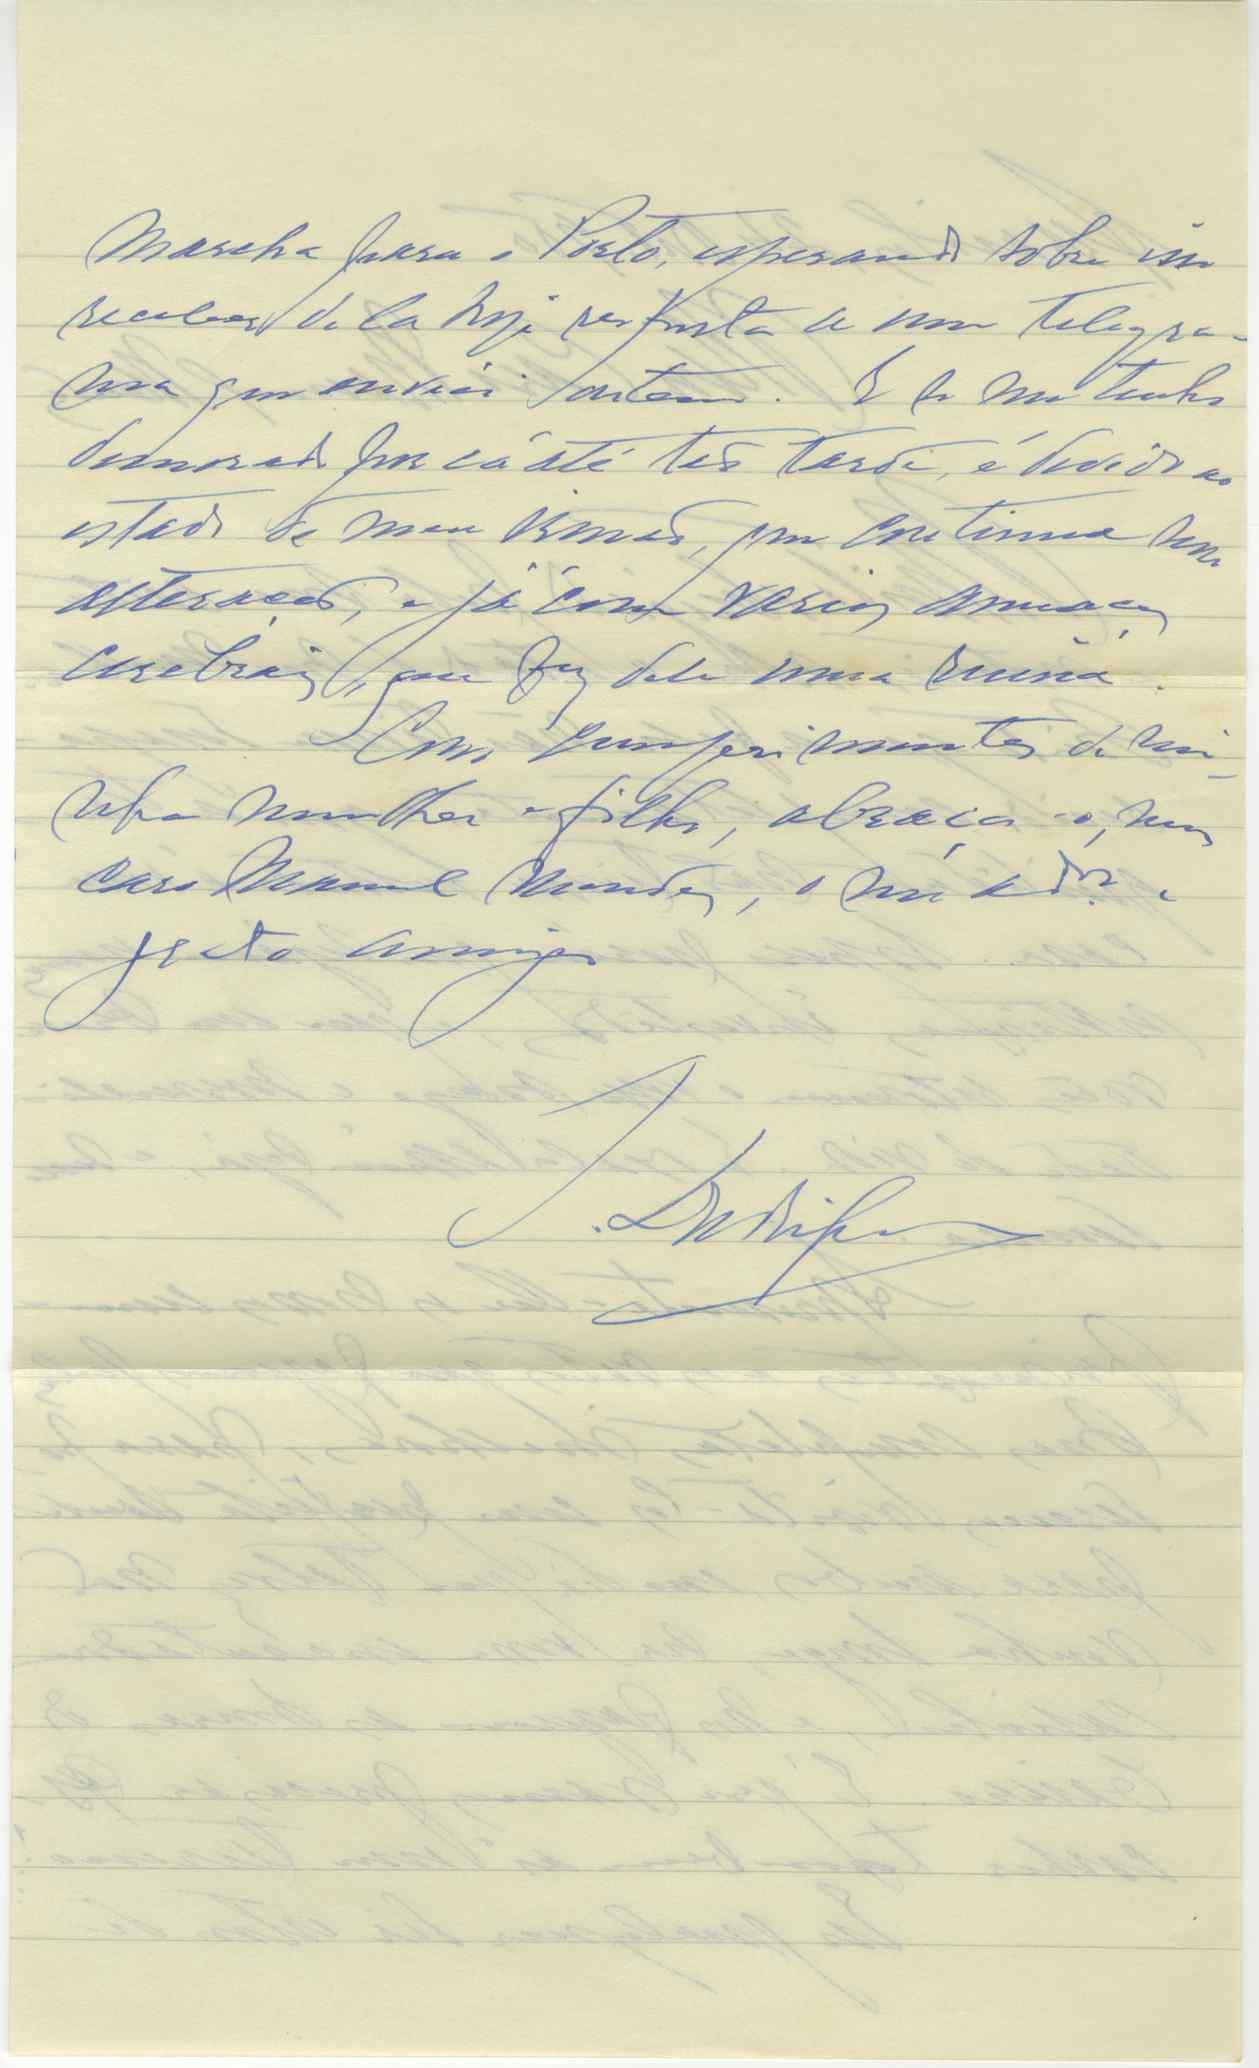 marcha para o Porto, esperando sobre isso
receber de la hoje resposta a um telegra-
ma que enviei ontem. E se me tenho
demorado por cá até tão tarde, é devido ao
estado de meu irmão, que continua sem
alteração, e já com varias ameaças
cerebrais, que fez dele uma ruina.
Com cumprimentos de mi-
nha mulher e filho, abraça-o, meu
caro Manuel Mendes, o seu adm.or e
grato amigo